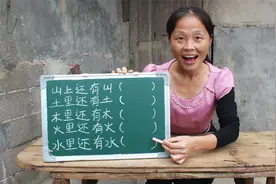 山上还有山(    )
土里还有土(    )
木里还有木(    )
火里还有火(    )
水里还有水(    )